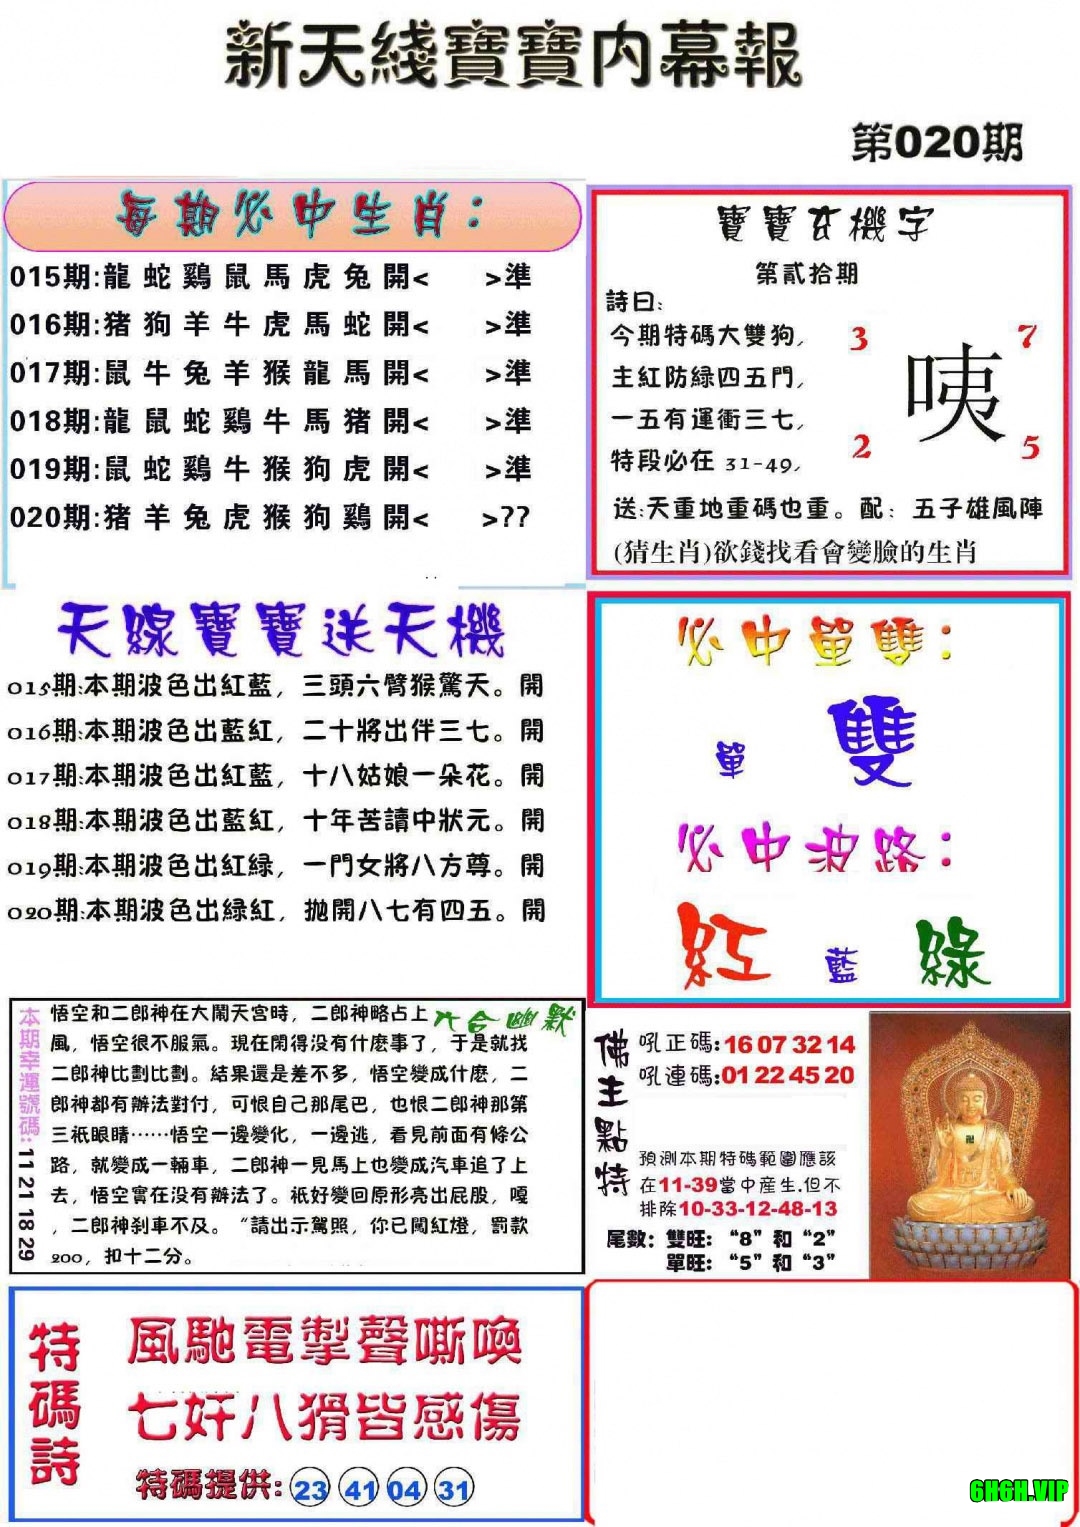 新天綫寶寶内幕報
第020期
每期必中生肖：
015期:龍 蛇 鷄 鼠 馬 虎 兔 開<    >準
016期:猪 狗 羊 牛 虎 馬 蛇 開<    >準
017期:鼠 牛 兔 羊 猴 龍 馬 開<    >準
018期:龍 鼠 蛇 鷄 牛 馬 猪 開<    >準
019期:鼠 蛇 鷄 牛 猴 狗 虎 開<    >準
020期:猪 羊 兔 虎 猴 狗 鷄 開<    >??
寶寶玄機字
第貳拾期
詩曰:
今期特碼大雙狗,
主紅防緑四五門,
一五有運衝三七,
特段必在 31-49,
3 7
咦
2 5
送:天重地重碼也重。配：五子雄風陣
(猜生肖)欲錢找看會變臉的生肖
天線寶寶送天機
015期:本期波色出紅藍，三頭六臂猴驚天。開
016期:本期波色出藍紅，二十將出伴三七。開
017期:本期波色出紅藍，十八姑娘一朵花。開
018期:本期波色出藍紅，十年苦讀中狀元。開
019期:本期波色出紅緑，一門女將八方尊。開
020期:本期波色出緑紅，抛開八七有四五。開
必中單雙：
單 雙
必中波路：
紅 藍 綠
本期幸運號碼: 11 21 18 29
六合幽默
悟空和二郎神在大鬧天宫時，二郎神略占上
風，悟空很不服氣。現在閑得没有什麽事了，于是就找
二郎神比劃比劃。結果還是差不多，悟空變成什麽，二
郎神都有辦法對付，可恨自己那尾巴，也恨二郎神那第
三祇眼睛……悟空一邊變化，一邊逃，看見前面有條公
路，就變成一輛車，二郎神一見馬上也變成汽車追了上
去，悟空實在没有辦法了。祇好變回原形亮出屁股，嘎
，二郎神刹車不及。“請出示駕照，你已闖紅燈，罰款
200，扣十二分。
佛主點特
吼正碼:16 07 32 14
吼連碼:01 22 45 20
預測本期特碼範圍應該
在11-39當中産生.但不
排除10-33-12-48-13
尾數：雙旺：“8”和“2”
單旺：“5”和“3”
特碼詩
風馳電掣聲嘶喚
七奸八猾皆感傷
特碼提供: 23 41 04 31
6H6H.VIP